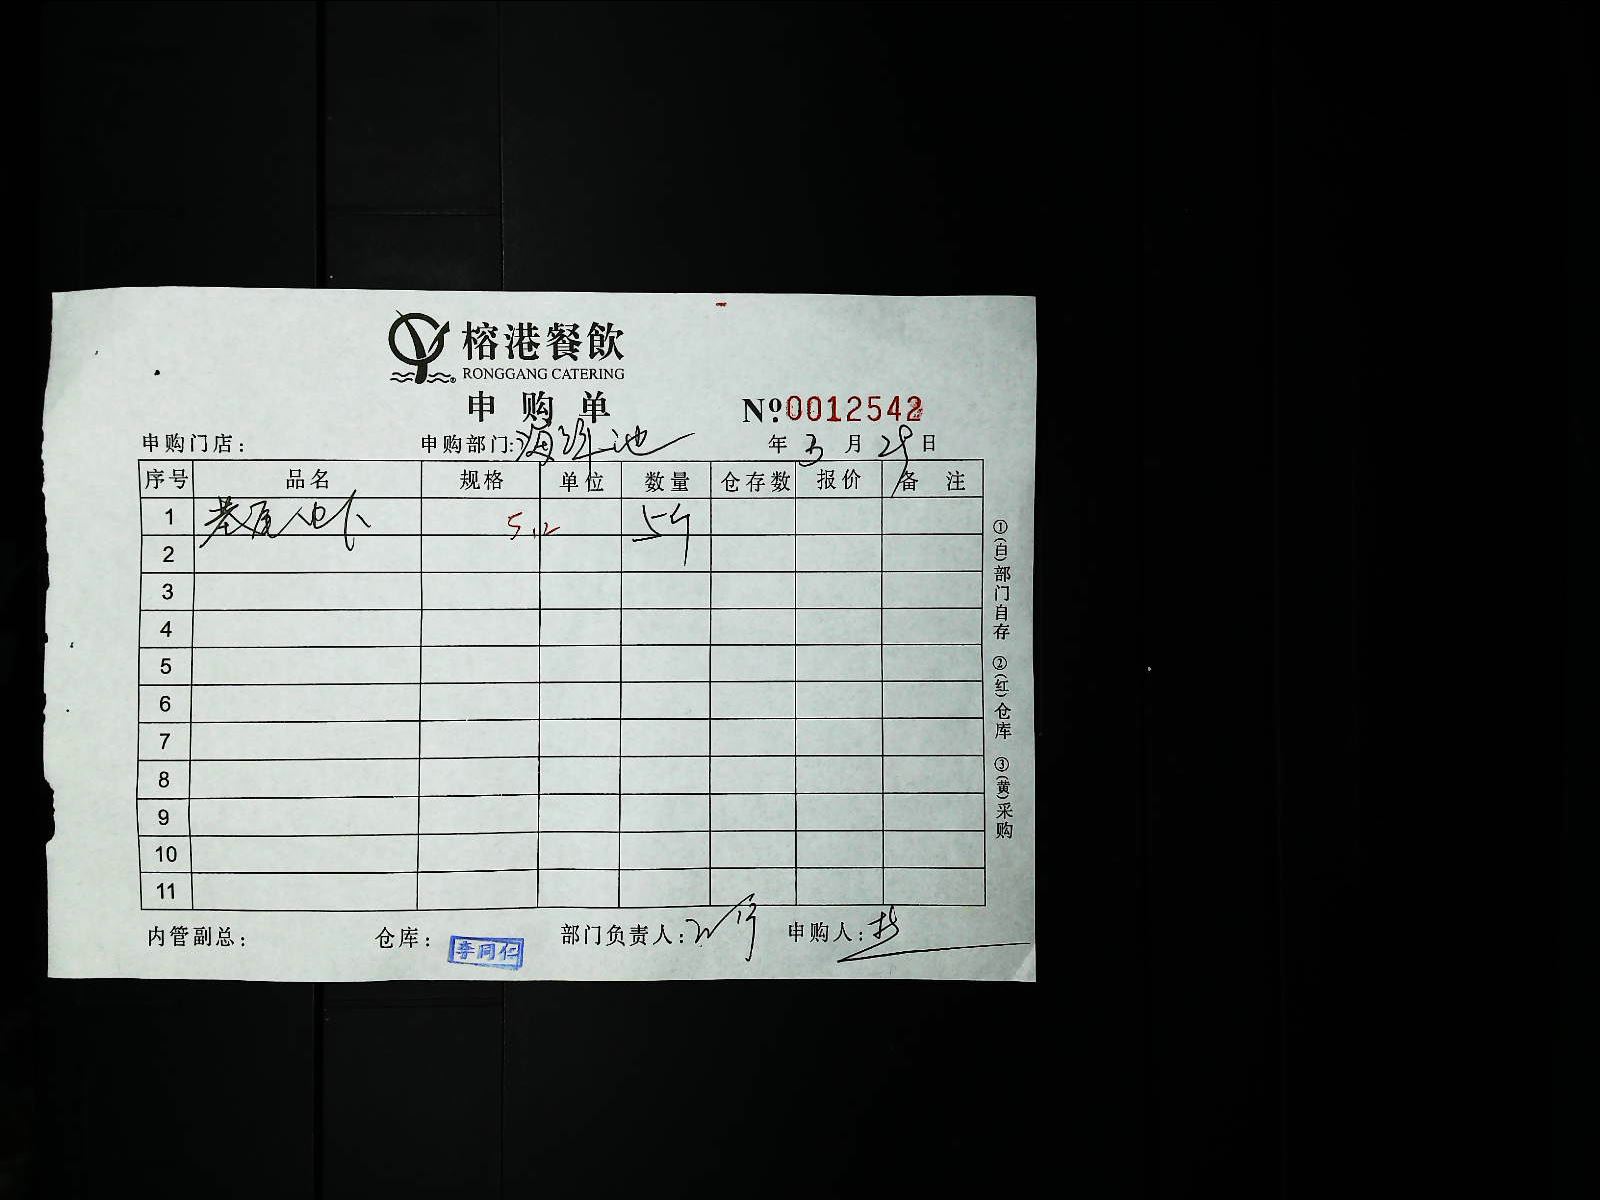 榕港餐飲
RONGGANG CATERING
申购单
№0012542
申购门店： 申购部门:海鲜池 年 3 月 29 日
序号 品名 规格 单位 数量 仓存数 报价 备 注
1 5.12 5斤
2
3
4
5
6
7
8
9
10
11
①(白)部门自存 ②(红)仓库 ③(黄)采购
内管副总： 仓库：李同仁 部门负责人： 申购人：